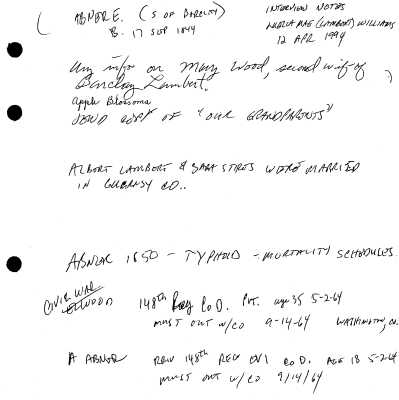 ABNER E. (S OF BARCLAY)
B. 17 SEP 1844
INTERVIEW NOTES
MAE (LAMBERT) WILLIAMS
12 APR 1994
Any info on Mary Wood, second wife of
Barclay Lambert.
Apple Blossoms
SEND COPY OF "OUR GRANDPARENTS"
ALBERT LAMBERT & SARA STIRES WERE MARRIED
IN GUERNSY CO..
ABNER 1850 - TYPHOID - MORTALITY SCHEDULES.
CIVIL WAR
ELWOOD 148th Reg Co D. Pvt. age 35 5-2-64
MUST OUT W/CO 9-14-64 WASHINGTON, CO.
A ABNER 148th REG OVI Co D. AGE 18 5-2-64
MUST OUT W/CO 9/14/64